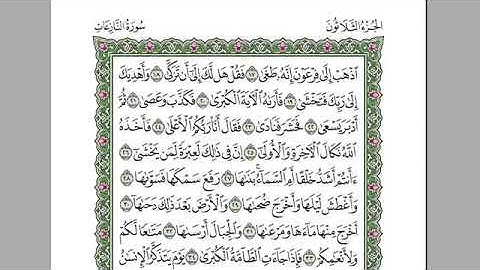 الجزء الثلاثون
سورة النازعات
ٱذْهَبْ إِلَىٰ فِرْعَوْنَ إِنَّهُۥ طَغَىٰ ١٧ فَقُلْ هَل لَّكَ إِلَىٰٓ أَن تَزَكَّىٰ ١٨ وَأَهْدِيَكَ
إِلَىٰ رَبِّكَ فَتَخْشَىٰ ١٩ فَأَرَىٰهُ ٱلْـَٔايَةَ ٱلْكُبْرَىٰ ٢٠ فَكَذَّبَ وَعَصَىٰ ٢١ ثُمَّ
أَدْبَرَ يَسْعَىٰ ٢٢ فَحَشَرَ فَنَادَىٰ ٢٣ فَقَالَ أَنَا۠ رَبُّكُمُ ٱلْأَعْلَىٰ ٢٤ فَأَخَذَهُ
ٱللَّهُ نَكَالَ ٱلْـَٔاخِرَةِ وَٱلْأُولَىٰٓ ٢٥ إِنَّ فِى ذَٰلِكَ لَعِبْرَةً لِّمَن يَخْشَىٰٓ ٢٦
ءَأَنتُمْ أَشَدُّ خَلْقًا أَمِ ٱلسَّمَآءُ ۚ بَنَىٰهَا ٢٧ رَفَعَ سَمْكَهَا فَسَوَّىٰهَا ٢٨
وَأَغْطَشَ لَيْلَهَا وَأَخْرَجَ ضُحَىٰهَا ٢٩ وَٱلْأَرْضَ بَعْدَ ذَٰلِكَ دَحَىٰهَآ ٣٠
أَخْرَجَ مِنْهَا مَآءَهَا وَمَرْعَىٰهَا ٣١ وَٱلْجِبَالَ أَرْسَىٰهَا ٣٢ مَتَٰعًا لَّكُمْ
وَلِأَنْعَٰمِكُمْ ٣٣ فَإِذَا جَآءَتِ ٱلطَّآمَّةُ ٱلْكُبْرَىٰ ٣٤ يَوْمَ يَتَذَكَّرُ ٱلْإِنسَٰنُ